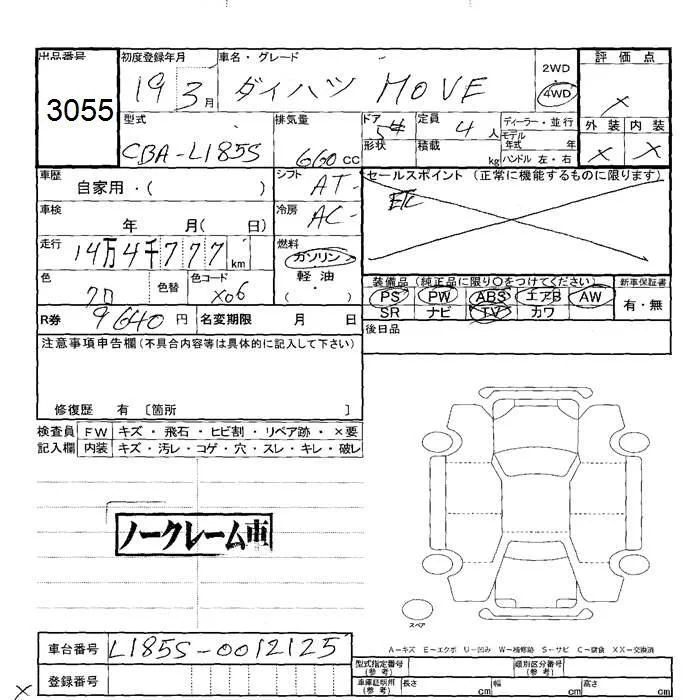 出品番号 初度登録年月 車名・グレード 2WD 評価点
3055 19 3月 ダイハツ MOVE 4WD ×
型式 排気量 ドア 定員 ディーラー・並行 外装 内装
CBA-L185S 660cc 5 4人 モデル年式 年 × ×
形状 積載 kg ハンドル 左・右
車歴 シフト セールスポイント (正常に機能するものに限ります)
自家用・( ) AT- ETC
車検 年 月( 日) 冷房 AC-
走行 14万4千777km 燃料 ガソリン
軽油
( )
色 色替 色コード X06 装備品 (純正品に限り○をつけてください) 新車保証書
PS PW ABS エアB AW 有・無
SR ナビ TV カワ
R券 9640円 名変期限 月 日 後日品
注意事項申告欄(不具合内容等は具体的に記入して下さい)
修復歴 有 [箇所 ]
検査員 FW キズ・飛石・ヒビ割・リペア跡・×要
記入欄 内装 キズ・汚レ・コゲ・穴・スレ・キレ・破レ
ノークレーム車
スペア
A-キズ E-エクボ U-凹み W-補修跡 S-サビ C-腐食 XX-交換済
車台番号 L185S-0012125 型式指定番号(参考) 類別区分番号(参考)
登録番号 車庫証明用(参考) 長さ cm 幅 cm 高さ cm
×